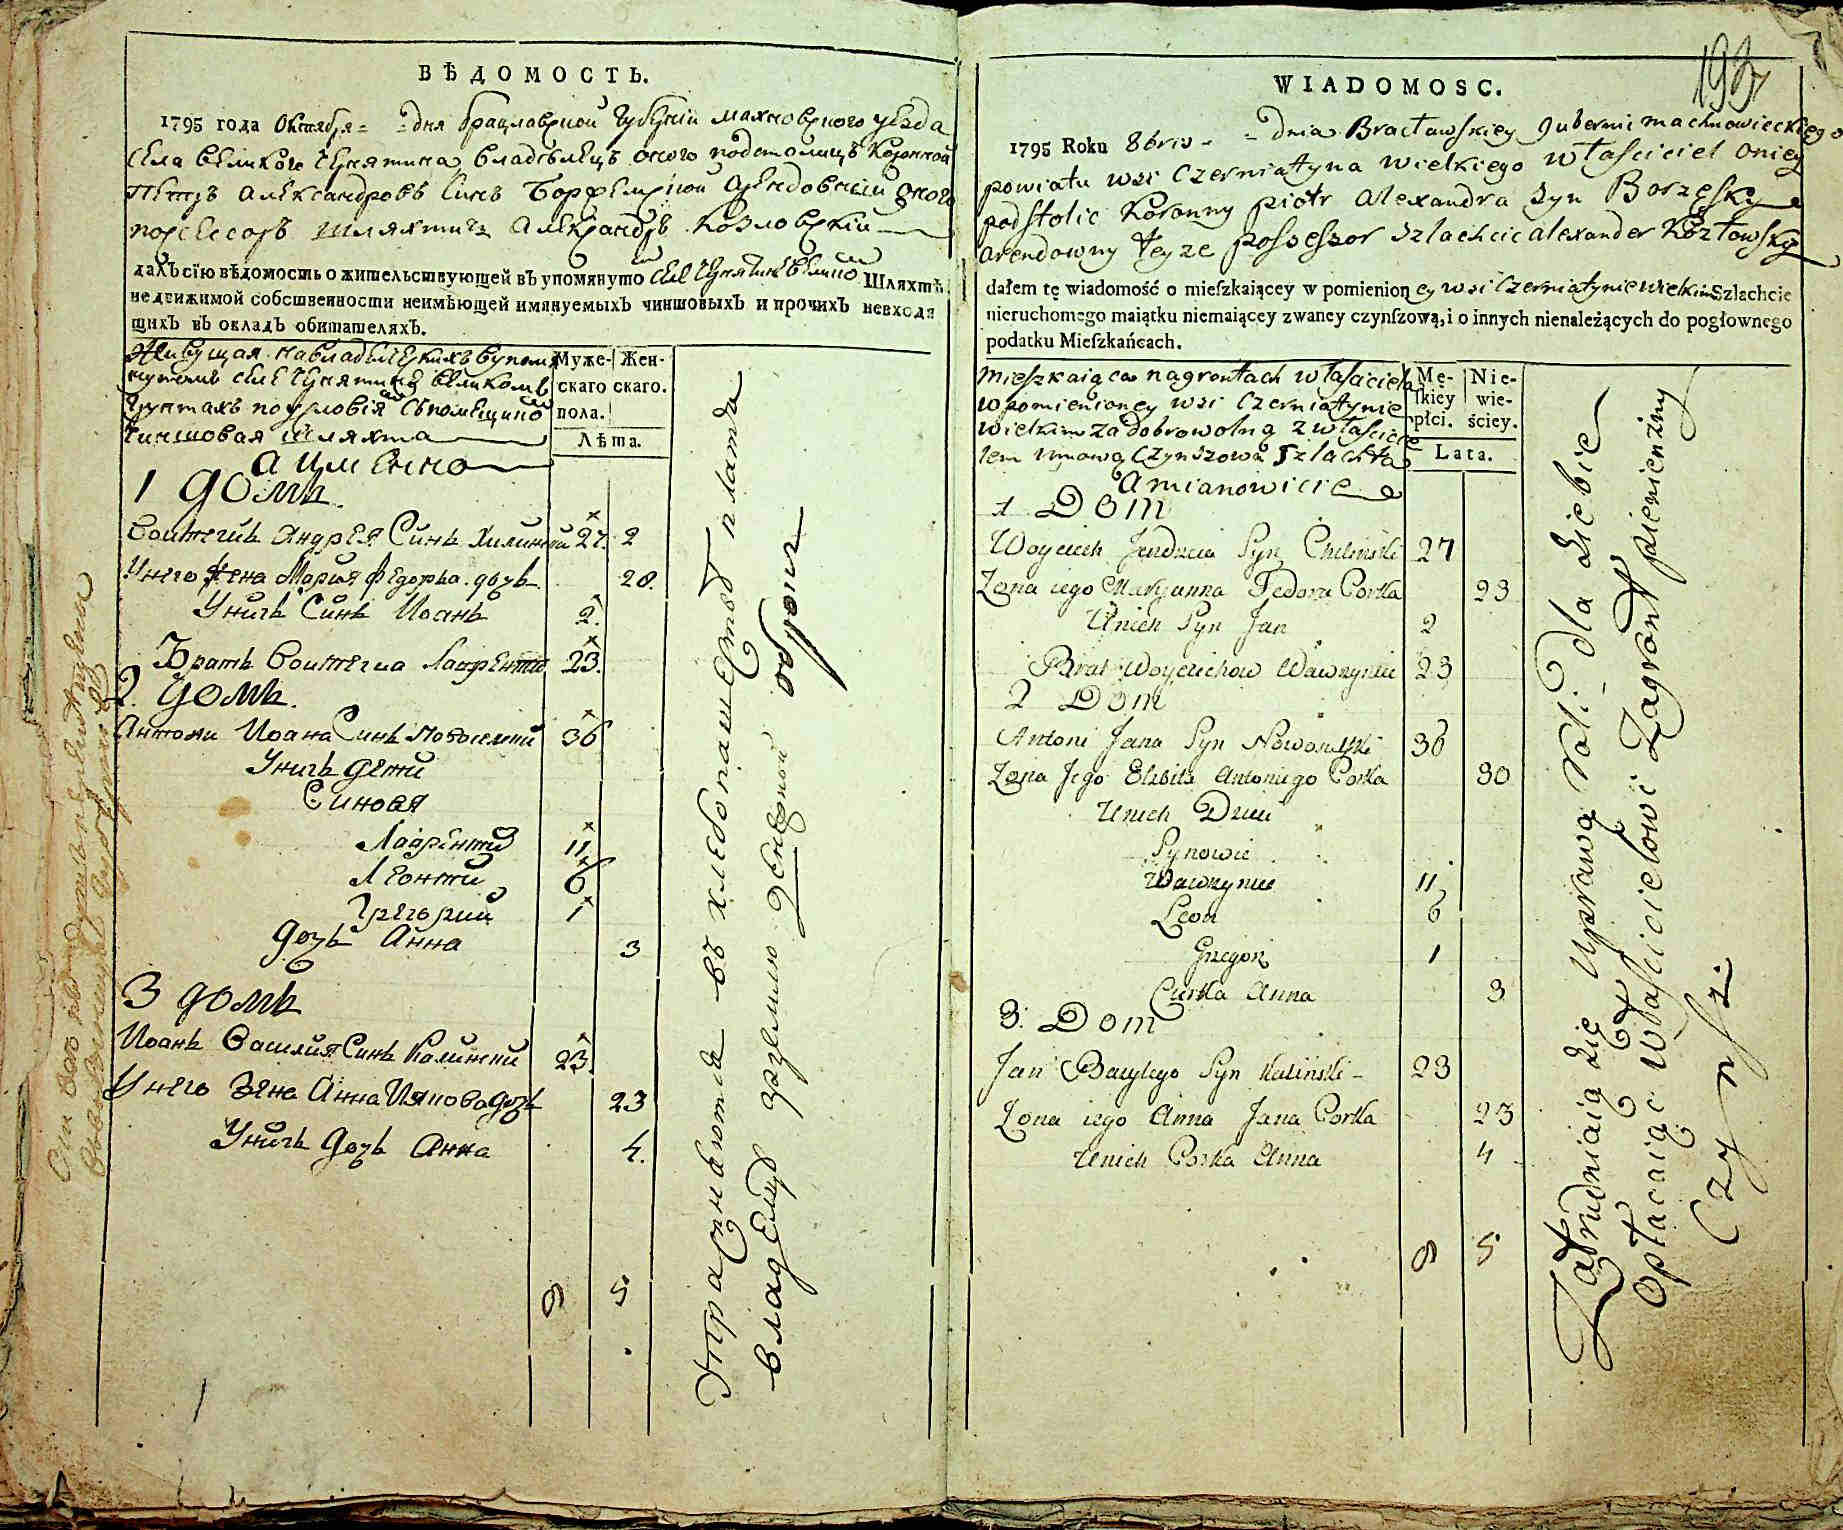 ВѢДОМОСТЬ.
1795 года Октября = = дня Брацлавской Губернiи Махновского уезда
села Великого Чернятина владелецъ оного подстолицъ коронной
Петръ Александровъ Синъ арендовнiй оного
посессоръ шляхтичъ Александръ Козловскiй
далъ сїю вѣдомость о жительствующей въ упомянуто селе Чернятине Великом Шляхтѣ,
недвижимой собственности неимѣющей имянуемыхъ чиншовыхъ и прочихъ невходя
щихъ въ окладъ обитателяхъ.
Живущая на владелческихъ в упомя
нутомъ селе Чернятине великомъ
грунтахъ по условiя с помещико
чиншовая шляхта
а именно
Муже- Жен-
скаго скаго.
пола.
Лѣта.
1 домъ
Войтехъ Андрея Синъ Хилинский 27. 2
У него жена Мария Федорка дочь 28.
У нихъ Синъ Иоанъ 2.
Братъ Войтеха Лаврентий 23.
2. домъ.
Антони Иоана Синъ 36
У нихъ дети
Синовя
Лаврентий 11
Леонтий 6
Григорий 1
дочь Анна 3
3 домъ
Иоанъ Василия Синъ Калинский 23.
У него жена Анна дочь 23
У нихъ дочь Анна 4.
9 5
Упражняются въ хлебопашестве платя
владелцу з землю денежной
оброкъ
193
WIADOMOSC.
1795 Roku 8bris - = dnia Bracławskiey Gubernii Machnowieckiego
powiatu wsi Czerniatyna wielkiego własciciel oniey
podstolic koronny Piotr Alexandra Syn Borzęcky
arendowny teyze possessor Szlachcic Alexander Kozłowsky
dałem tę wiadomość o mieſzkaiącey w pomienioney wsi Czerniatynie wielkim Szlachcie
nieruchomego maiątku niemaiącey zwaney czynſzową, i o innych nienależących do pogłownego
podatku Mieſzkańcach.
Mieszkaiąca nagrontach własciciela
w pomienioney wsi Czerniatynie
wielkim za dobrowolną z własicie
lem umową czynszowa Szlachta
Amianowicie
Mę- Nie-
ſkiey wie-
płci. ściey.
Lata.
1 Dom
Woyciech Jendrzeia Syn Chiliński 27
Zona iego Maryanna Fedora Corka 23
Unich Syn Jan 2
Brat Woyciechow Wawrzyniec 23
2 Dom
Antoni Jana Syn 36
Zona Jego Elzbita Antoniego Corka 30
Unich Dzieci
Synowie
Wawrzyniec 11
Leon 6
Gregori 1
Curka Anna 3
3. Dom
Jan Bazylego Syn Kaliński - 23
Zona iego Anna Jana Corka 23
Unich Corka Anna 4
9 5
Zatrudniaią się Uprawą roli dla siebie
Opłacaiąc własicielowi Zagront pieniężny
Czynsz.